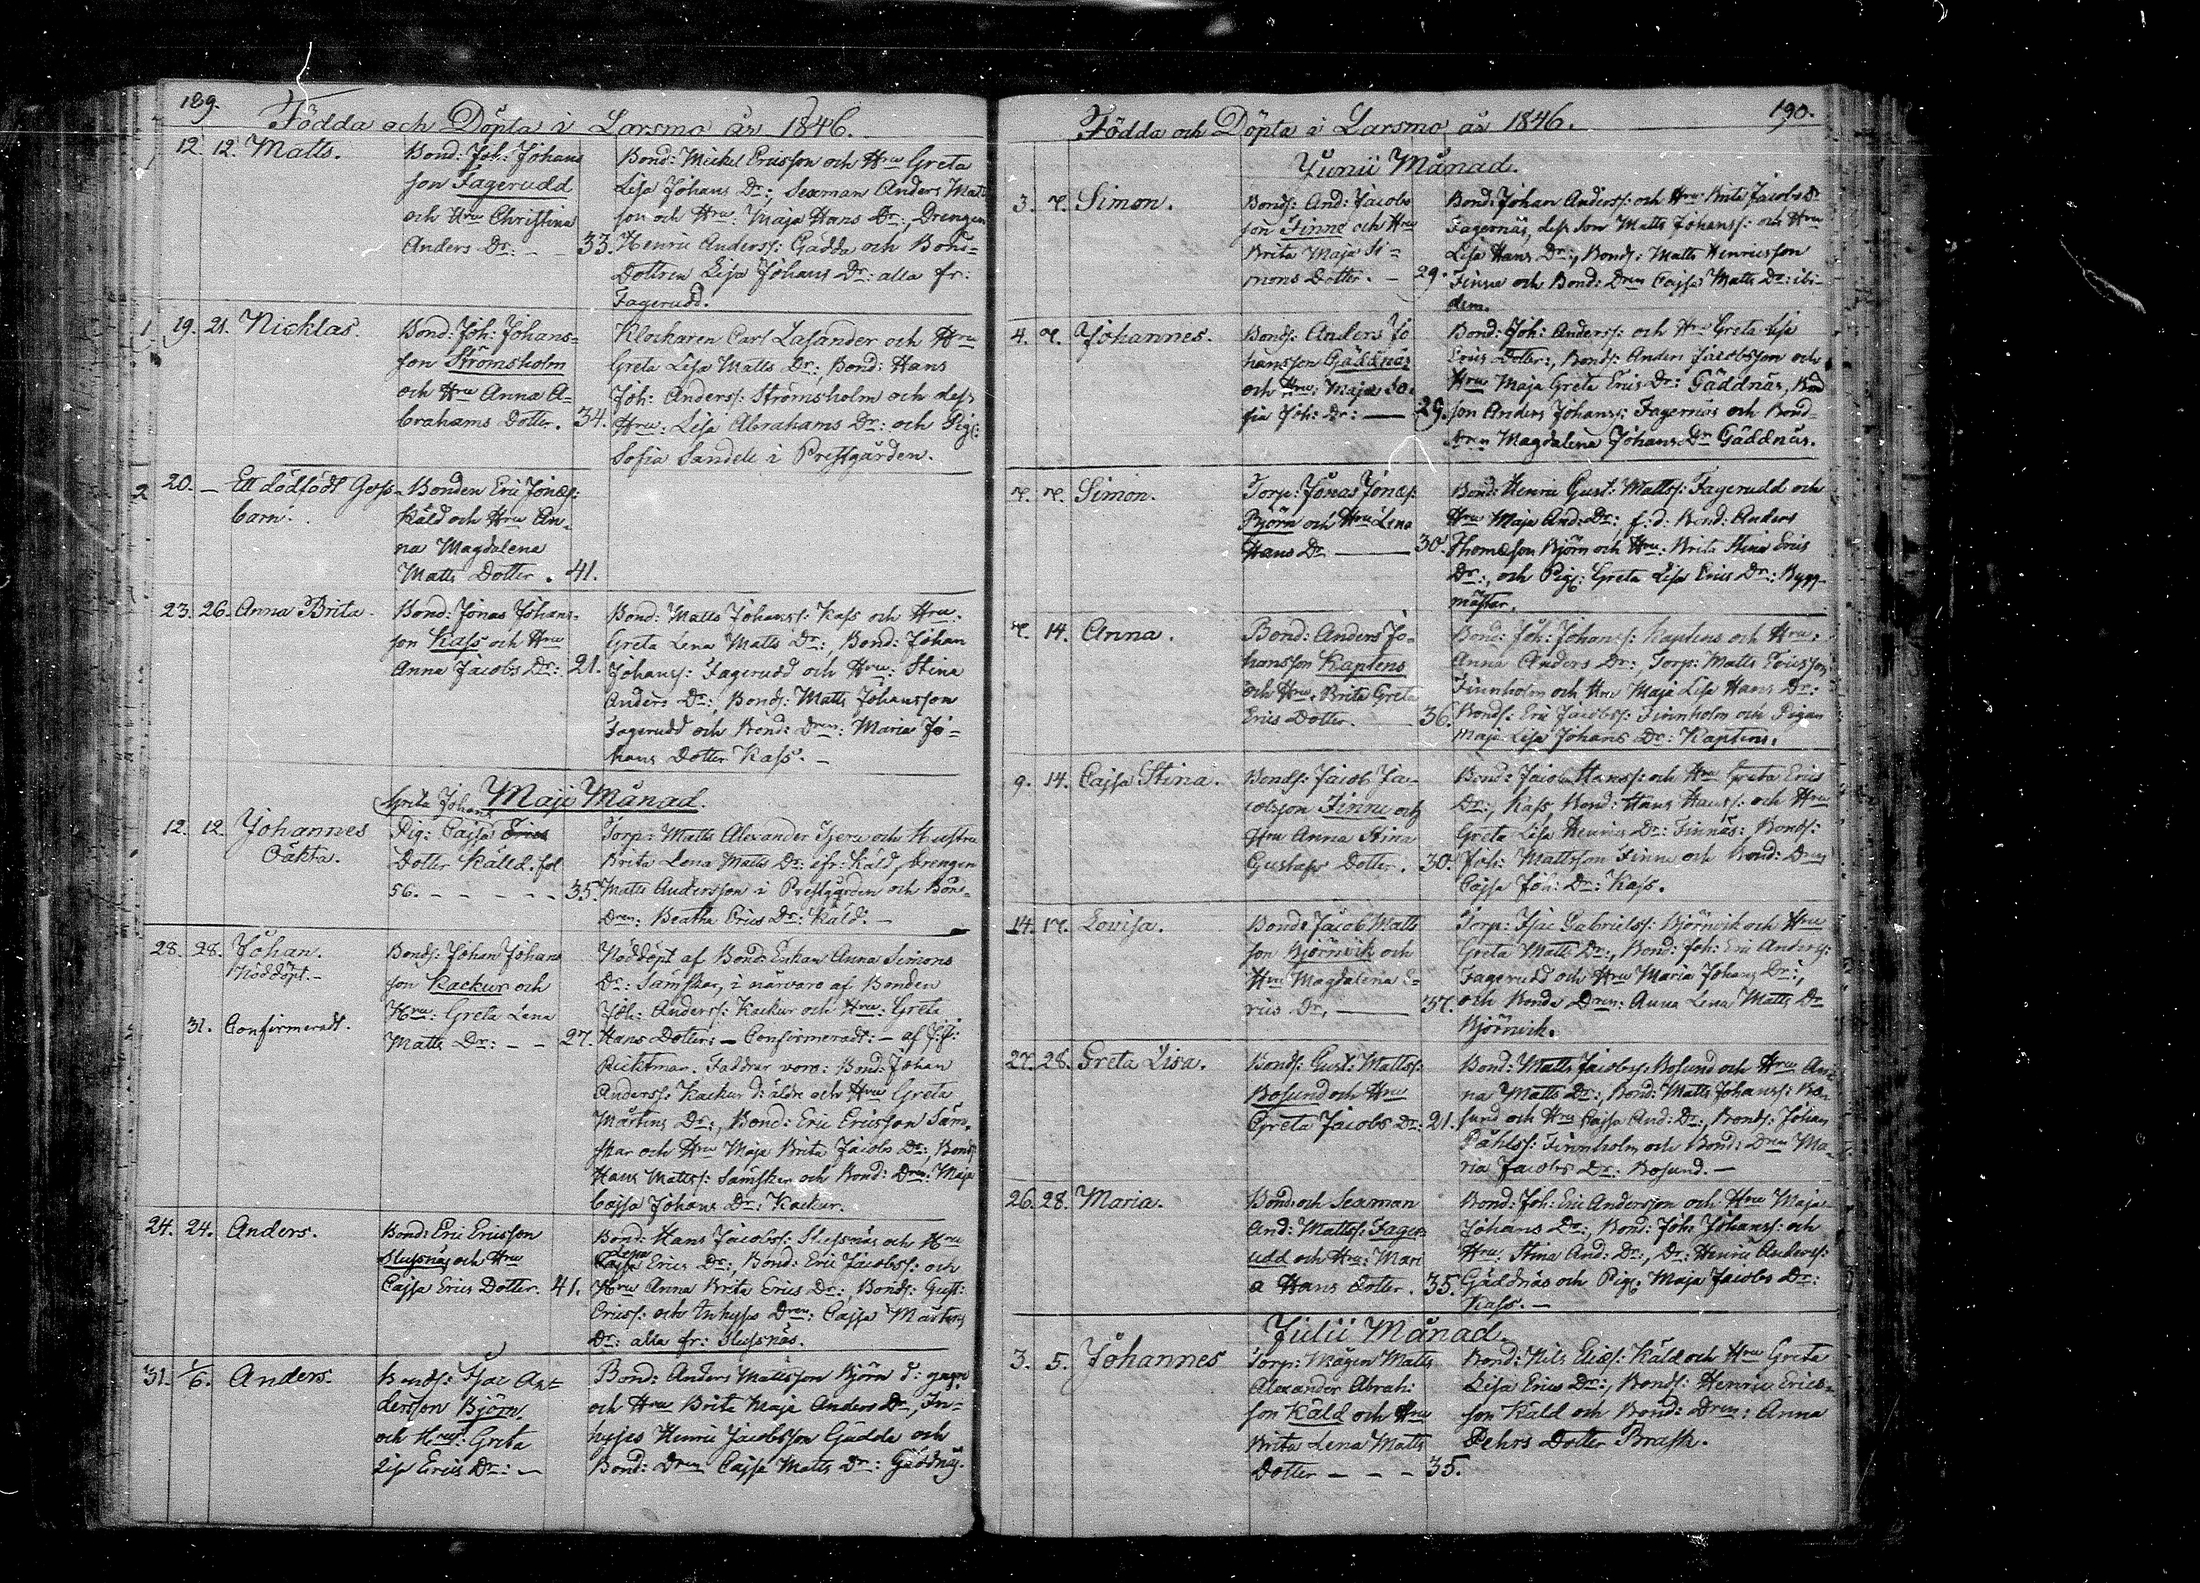 189.
Födda och Döpta i Larsmo år 1846.
12. 12. Matts.
Bond: Joh: Johans
son Fagerudd
och Hru Christina
Anders Dr: – – 33.
Bond: Mickel Ericsson och Hru Greta
Lisa Johans Dr:, Seaman Anders Matts
son och Hru: Maja Hans Dr:, Drengen
Henric Anderss: Gädda och Bond=
Dottren Lisa Johans Dr: alla fr:
Fagerudd.
1. 19. 21. Nicklas.
Bond: Joh: Johans=
son Strömsholm
och Hru Anna A=
brahams Dotter. 34.
Klockaren Carl Lasander och Hru
Greta Lisa Matts Dr:, Bond: Hans
Joh: Anderss: Strömsholm och dess
Hru: Lisa Abrahams Dr: och Pig:
Sofia Sandell i Prestgården.
2 20. – Ett dödfödt Goss-
barn.
Bonden Eric Jonæs:
Käld och Hru An-
na Magdalena
Matts Dotter. 41.
23. 26. Anna Brita.
Bond: Jonas Johans-
son Kass och Hru
Anna Jacobs Dr: 21.
Bond: Matts Johanss: Kass och Hru:
Greta Lena Matts Dr:, Bond: Johan
Johanss: Fagerudd och Hru: Stina
Anders Dr:, Bonds: Matts Johansson
Fagerudd och Bond: Dren: Maria Jo=
hans Dotter Kass. –
Maji Månad.
12. 12. Johannes
Oäkta.
Greta Johans
Pig: Cajsa Erics
Dotter Källd. fol
56. – – – – – 35.
Torp: Matts Alexander Tjeru och Hustru
Brita Lena Matts Dr: efr: Käld, drengen
Matts Andersson i Prestgården och Bon=
Dren: Beatha Erics Dr: Käld. –
28. 28. Johan.
Nöddöpt. –
31. Confirmeradt.
Bonds: Johan Johans
son Kackur och
Hru: Greta Lena
Matts Dr: – – 27.
Nöddöpt af Bond: Enkan Anna Simons
Dr: Sämskar, i närvaro af Bonden
Joh: Anderss: Kackur och Hru: Greta
Hans Dotter: – Confirmeradt: – af
Faddrar voro: Bond: Johan
Anderss: Kackur d: äldre och Hru Greta
Mårtens Dr:, Bond: Eric Ericsson Säm-
skar och Hru Maja Brita Jacobs Dr:, Bonds
Hans Matts: Sämskar och Bond: Dren: Maja
Cajsa Johans Dr: Kackur.
24. 24. Anders.
Bond: Eric Ericsson
Slussnäs och Hru
Cajsa Erics Dotter. 41.
Bond: Hans Jacobs: Slussnäs och Hru
Lisa
Cajsa Erics Dr:, Bond: Eric Jacobss: och
Hru Anna Brita Erics Dr:, Bonds: Gust:
Ericss: och Inhyses Dren: Cajsa Mårtens
Dr: alla fr: Slussnäs.
31. 1/6. Anders.
Bonds: Isac An=
dersson Björn
och Hru: Greta
Lisa Erics Dr: –
Bond: Anders Mattsson Björn d: yngre
och Hru Brita Maja Anders Dr:, In-
hyses Henric Jacobsson Gädda och
Bond: Dren Cajsa Matts Dr: Gäddnäs.
190.
Födda och Döpta i Larsmo år 1846.
Junii Månad.
3. 7. Simon.
Bonds: And: Jacobs
son Finne och Hru
Brita Maja Si=
mons Dotter. – 29.
Bond: Johan Anderss: och Hru Brita Jacobs Dr
Fagernäs, Matts Johanss: och Hru
Lisa Hans Dr:, Bonds: Matts Henricsson
Finne och Bond: Dren Cajsa Matts Dr: ibi-
dem.
4. 7. Johannes.
Bonds: Anders Jo
hansson Gäddnäs
och Hru: Maja So-
fia Joh: Dr: — 29.
Bond: Joh: Anderss: och Hru Greta Lisa
Erics Dotter:, Bonds: Anders Jacobsson och
Hru Maja Greta Erics Dr: Gäddnäs, Bond
son Anders Johanss: Fagernäs och Bond=
Dren Magdalena Johans Dr Gäddnäs.
7. 7. Simon.
Torp: Jonas Jonæs:
Björn och Hru Lena
Hans Dr — 30.
Bond: Henric Gust: Mattss: Fagerudd och
Hru Maja And: Dr: f: d: Bond: Anders
Thomæson Björn och Hru: Brita Stina Erics
Dr:, och Pig: Greta Lisa Erics Dr: Bygg-
mästar.
7. 14. Anna.
Bond: Anders Jo=
hansson Kaptens
och Hru. Brita Greta
Erics Dotter. – 36.
Bond: Joh: Johanss: Kaptens och Hru:
Anna Anders Dr:, Torp: Matts Ericsson
Finnholm och Hru Maja Lisa Hans Dr:
Bonds: Eric Jacobss: Finnholm och Pigan
Maja Lisa Johans Dr: Kaptens.
9. 14. Cajsa Stina.
Bonds: Jacob Ja-
cobsson Finne och
Hru Anna Stina
Gustafs Dotter. 30.
Bond: Jacob Hanss: och Hru Greta Erics
Dr:, Kass Bond: Hans Hanss: och Hru
Greta Lisa Henrics Dr: Finnäs: Bonds:
Joh: Mattsson Finne och Bond: Dren
Cajsa Joh: Dr: Kass.
14. 17. Lovisa.
Bond: Jacob Matts
son Björnvik och
Hru Magdalena E-
rics Dr. — 37.
Torp: Isac Gabrielss: Björnvik och Hru
Greta Matts Dr:, Bond: Joh: Eric Anderss:
Fagerudd och Hru Maria Johans Dr:,
och Bonda Dren: Anna Lena Matts Dr
Björnvik.
27. 28. Greta Lisa.
Bonds: Gust: Mattss:
Bosund och Hru
Greta Jacobs Dr: 21.
Bond: Matts Jacobss: Bosund och Hru An-
na Matts Dr:, Bond: Matts Johanss: Bo-
sund och Hru Cajsa And: Dr:, Bonds: Johan
Påhlss: Finnholm och Bond: Dren Ma-
ria Jacobs Dr: Bosund. –
26. 28. Maria.
Bond: och Seaman
And: Mattss: Fager
udd och Hru: Mari
a Hans Dotter. 35.
Bond: Joh: Eric Andersson och Hru Maja
Johans Dr:, Bond: Joh: Johanss: och
Hru. Stina And: Dr:, Dr: Henric Anderss:
Gäddnäs och Pig: Maja Jacobs Dr:
Kass. –
Julii Månad.
3. 5. Johannes
Torp: Mågen Matts
Alexander Abrah:
son Käld och Hru
Brita Lena Matts
Dotter – – – 35.
Bond: Nils Eliæs: Käld och Hru Greta
Lisa Erics Dr:, Bonds: Henric Erics-
son Käld och Bond: Dren: Anna
Pehrs Dotter Brask.